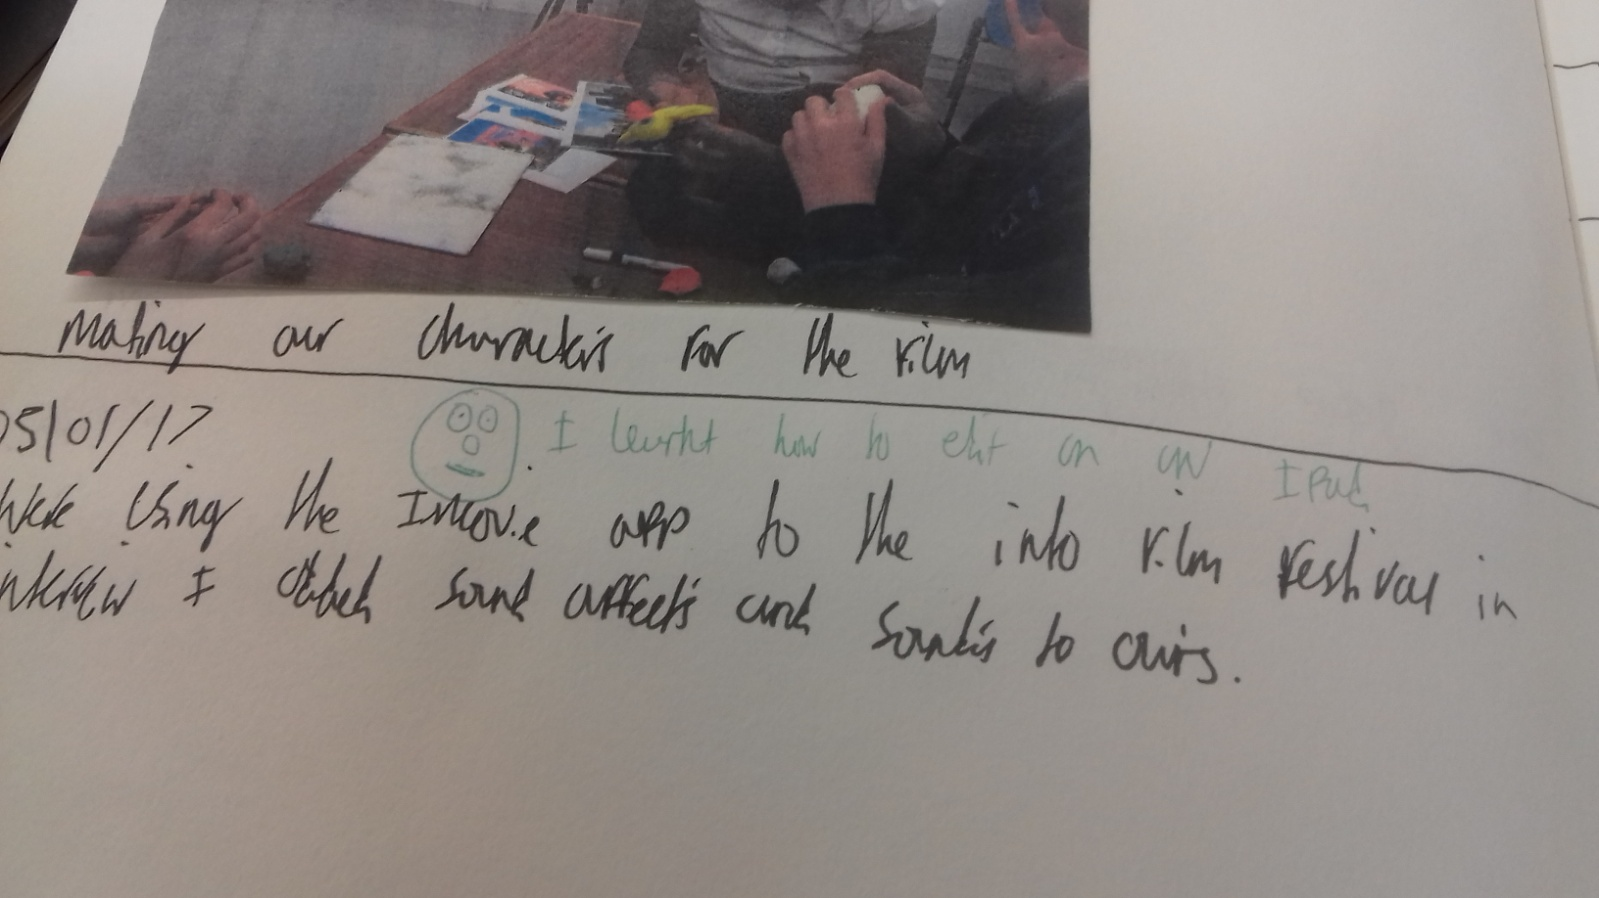 Making our characters for the film
05/01/17
I learnt how to edit on an IPad
Were using the Imovie app to the into film festival in
interview I added sound affects and sounds to ours.